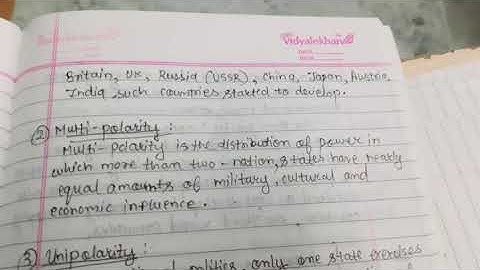 Vidyalekhan
DATE
Britain, UK, Russia (USSR), China, Japan, Austria,
India such countries started to develop.
② Multi-polarity :
Multi-polarity is the distribution of power in
which more than two-nation, states have nearly
equal amounts of military, cultural and
economic influence.
③ Unipolarity :
politics, only one state exercises